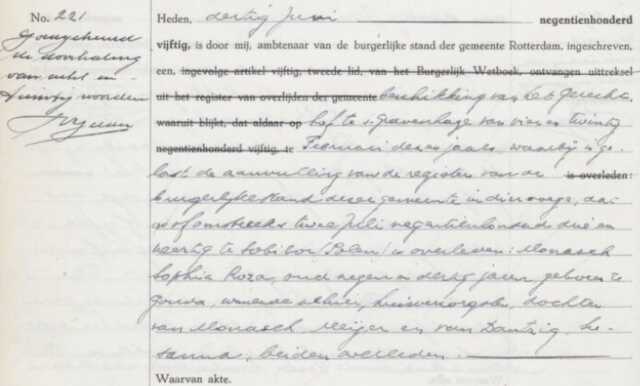 No. 221
Goedgekeurd
de doorhaling
van acht en
twintig woorden
Heden, dertig Juni negentienhonderd
vijftig, is door mij, ambtenaar van de burgerlijke stand der gemeente Rotterdam, ingeschreven,
een, ingevolge artikel vijftig, tweede lid, van het Burgerlijk Wetboek, ontvangen uittreksel
uit het register van overlijden der gemeente beschikking van het Gerechts-
waaruit blijkt, dat aldaar op hof te 's Gravenhage van vier en twintig
negentienhonderd vijftig, te Februari dezes jaars, waarbij is ge-
is overleden:
last de aanvulling van de registers van de
burgerlijke stand dezer gemeente in dier voege, dat
op of omstreeks twee Juli negentienhonderd drie en
veertig te Sobibor (Polen) is overleden: Monasch
Sophia Roza, oud negen en dertig jaren, geboren te
Gouda, wonende alhier, huisverzorgster, dochter
van Monasch, Meijer en van Dantzig, Su-
sanna, beiden overleden.
Waarvan akte.